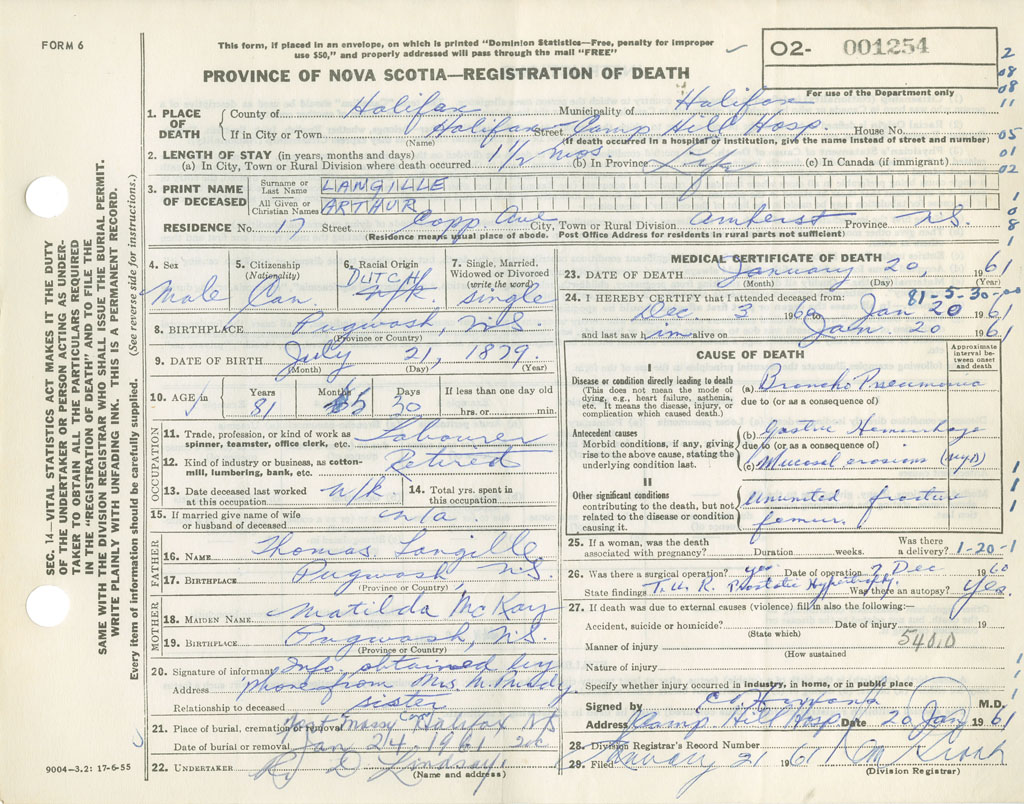 FORM 6
This form, if placed in an envelope, on which is printed "Dominion Statistics—Free, penalty for improper
use $50," and properly addressed will pass through the mail "FREE"
PROVINCE OF NOVA SCOTIA—REGISTRATION OF DEATH
O2- 001254
For use of the Department only
1. PLACE OF DEATH
County of Halifax Municipality of Halifax
If in City or Town Halifax Street Camp Hill Hosp. House No.
(Name) (If death occurred in a hospital or institution, give the name instead of street and number)
2. LENGTH OF STAY (in years, months and days)
(a) In City, Town or Rural Division where death occurred 1 1/2 mos. (b) In Province Life (c) In Canada (if immigrant)
3. PRINT NAME OF DECEASED
Surname or Last Name LANGILLE
All Given or Christian Names ARTHUR
RESIDENCE No. 17 Street Copp Ave City, Town or Rural Division Amherst Province N.S.
(Residence means usual place of abode. Post Office Address for residents in rural parts not sufficient)
4. Sex Male
5. Citizenship (Nationality) Can.
6. Racial Origin DUTCH n/k
7. Single, Married, Widowed or Divorced (write the word) single
8. BIRTHPLACE Pugwash, N.S.
(Province or Country)
9. DATE OF BIRTH July 21, 1879
(Month) (Day) (Year)
10. AGE in Years 81 Months 5 Days 30 If less than one day old hrs. or min.
OCCUPATION
11. Trade, profession, or kind of work as spinner, teamster, office clerk, etc. Labourer
12. Kind of industry or business, as cotton-mill, lumbering, bank, etc. Retired
13. Date deceased last worked at this occupation n/k 14. Total yrs. spent in this occupation
15. If married give name of wife or husband of deceased n/a.
FATHER
16. NAME Thomas Langille
17. BIRTHPLACE Pugwash, N.S.
(Province or Country)
MOTHER
18. MAIDEN NAME Matilda McKay
19. BIRTHPLACE Pugwash, N.S.
(Province or Country)
20. Signature of informant Info. obtained by
Address phone from Mrs. M.
Relationship to deceased sister
21. Place of burial, cremation or removal Halifax NS
Date of burial or removal Jan 24 1961
22. UNDERTAKER Lindsay
(Name and address)
9004—3.2: 17-6-55
MEDICAL CERTIFICATE OF DEATH
23. DATE OF DEATH January 20, 1961
(Month) (Day)
81-5-30-00
24. I HEREBY CERTIFY that I attended deceased from:
Dec 3 1960 to Jan 20 1961
and last saw him alive on Jan. 20 1961
CAUSE OF DEATH
Approximate interval between onset and death
I
Disease or condition directly leading to death
(This does not mean the mode of dying, e.g., heart failure, asthenia, etc. It means the disease, injury, or complication which caused death.)
(a) Broncho Pneumonia
due to (or as a consequence of)
Antecedent causes
Morbid conditions, if any, giving rise to the above cause, stating the underlying condition last.
(b) Gastric Hemorrhage
due to (or as a consequence of)
(c) Mucosal erosions (NYD)
II
Other significant conditions
contributing to the death, but not related to the disease or condition causing it.
Ununited fracture
femur.
25. If a woman, was the death associated with pregnancy? Duration weeks. Was there a delivery? 1-20-1
26. Was there a surgical operation? yes Date of operation 7 Dec 1960
State findings T.U.R. Prostatic Hypertrophy. Was there an autopsy? Yes.
27. If death was due to external causes (violence) fill in also the following:—
Accident, suicide or homicide? Date of injury 19
(State which)
Manner of injury 540.0
(How sustained
Nature of injury
Specify whether injury occurred in industry, in home, or in public place
Signed by M.D.
Address Camp Hill Hosp Date 20 Jan 1961
28. Division Registrar's Record Number
29. Filed January 31 1961
(Division Registrar)
SEC. 14—VITAL STATISTICS ACT MAKES IT THE DUTY
OF THE UNDERTAKER OR PERSON ACTING AS UNDER-
TAKER TO OBTAIN ALL THE PARTICULARS REQUIRED
IN THE "REGISTRATION OF DEATH" AND TO FILE THE
SAME WITH THE DIVISION REGISTRAR WHO SHALL ISSUE THE BURIAL PERMIT.
WRITE PLAINLY WITH UNFADING INK. THIS IS A PERMANENT RECORD.
Every item of information should be carefully supplied. (See reverse side for instructions.)
2
08
08
11
05
01
02
1
0
8
1